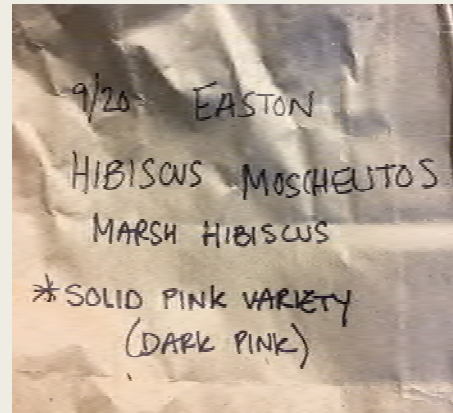 9/20 EASTON
HIBISCUS MOSCHEUTOS
MARSH HIBISCUS
* SOLID PINK VARIETY
(DARK PINK)